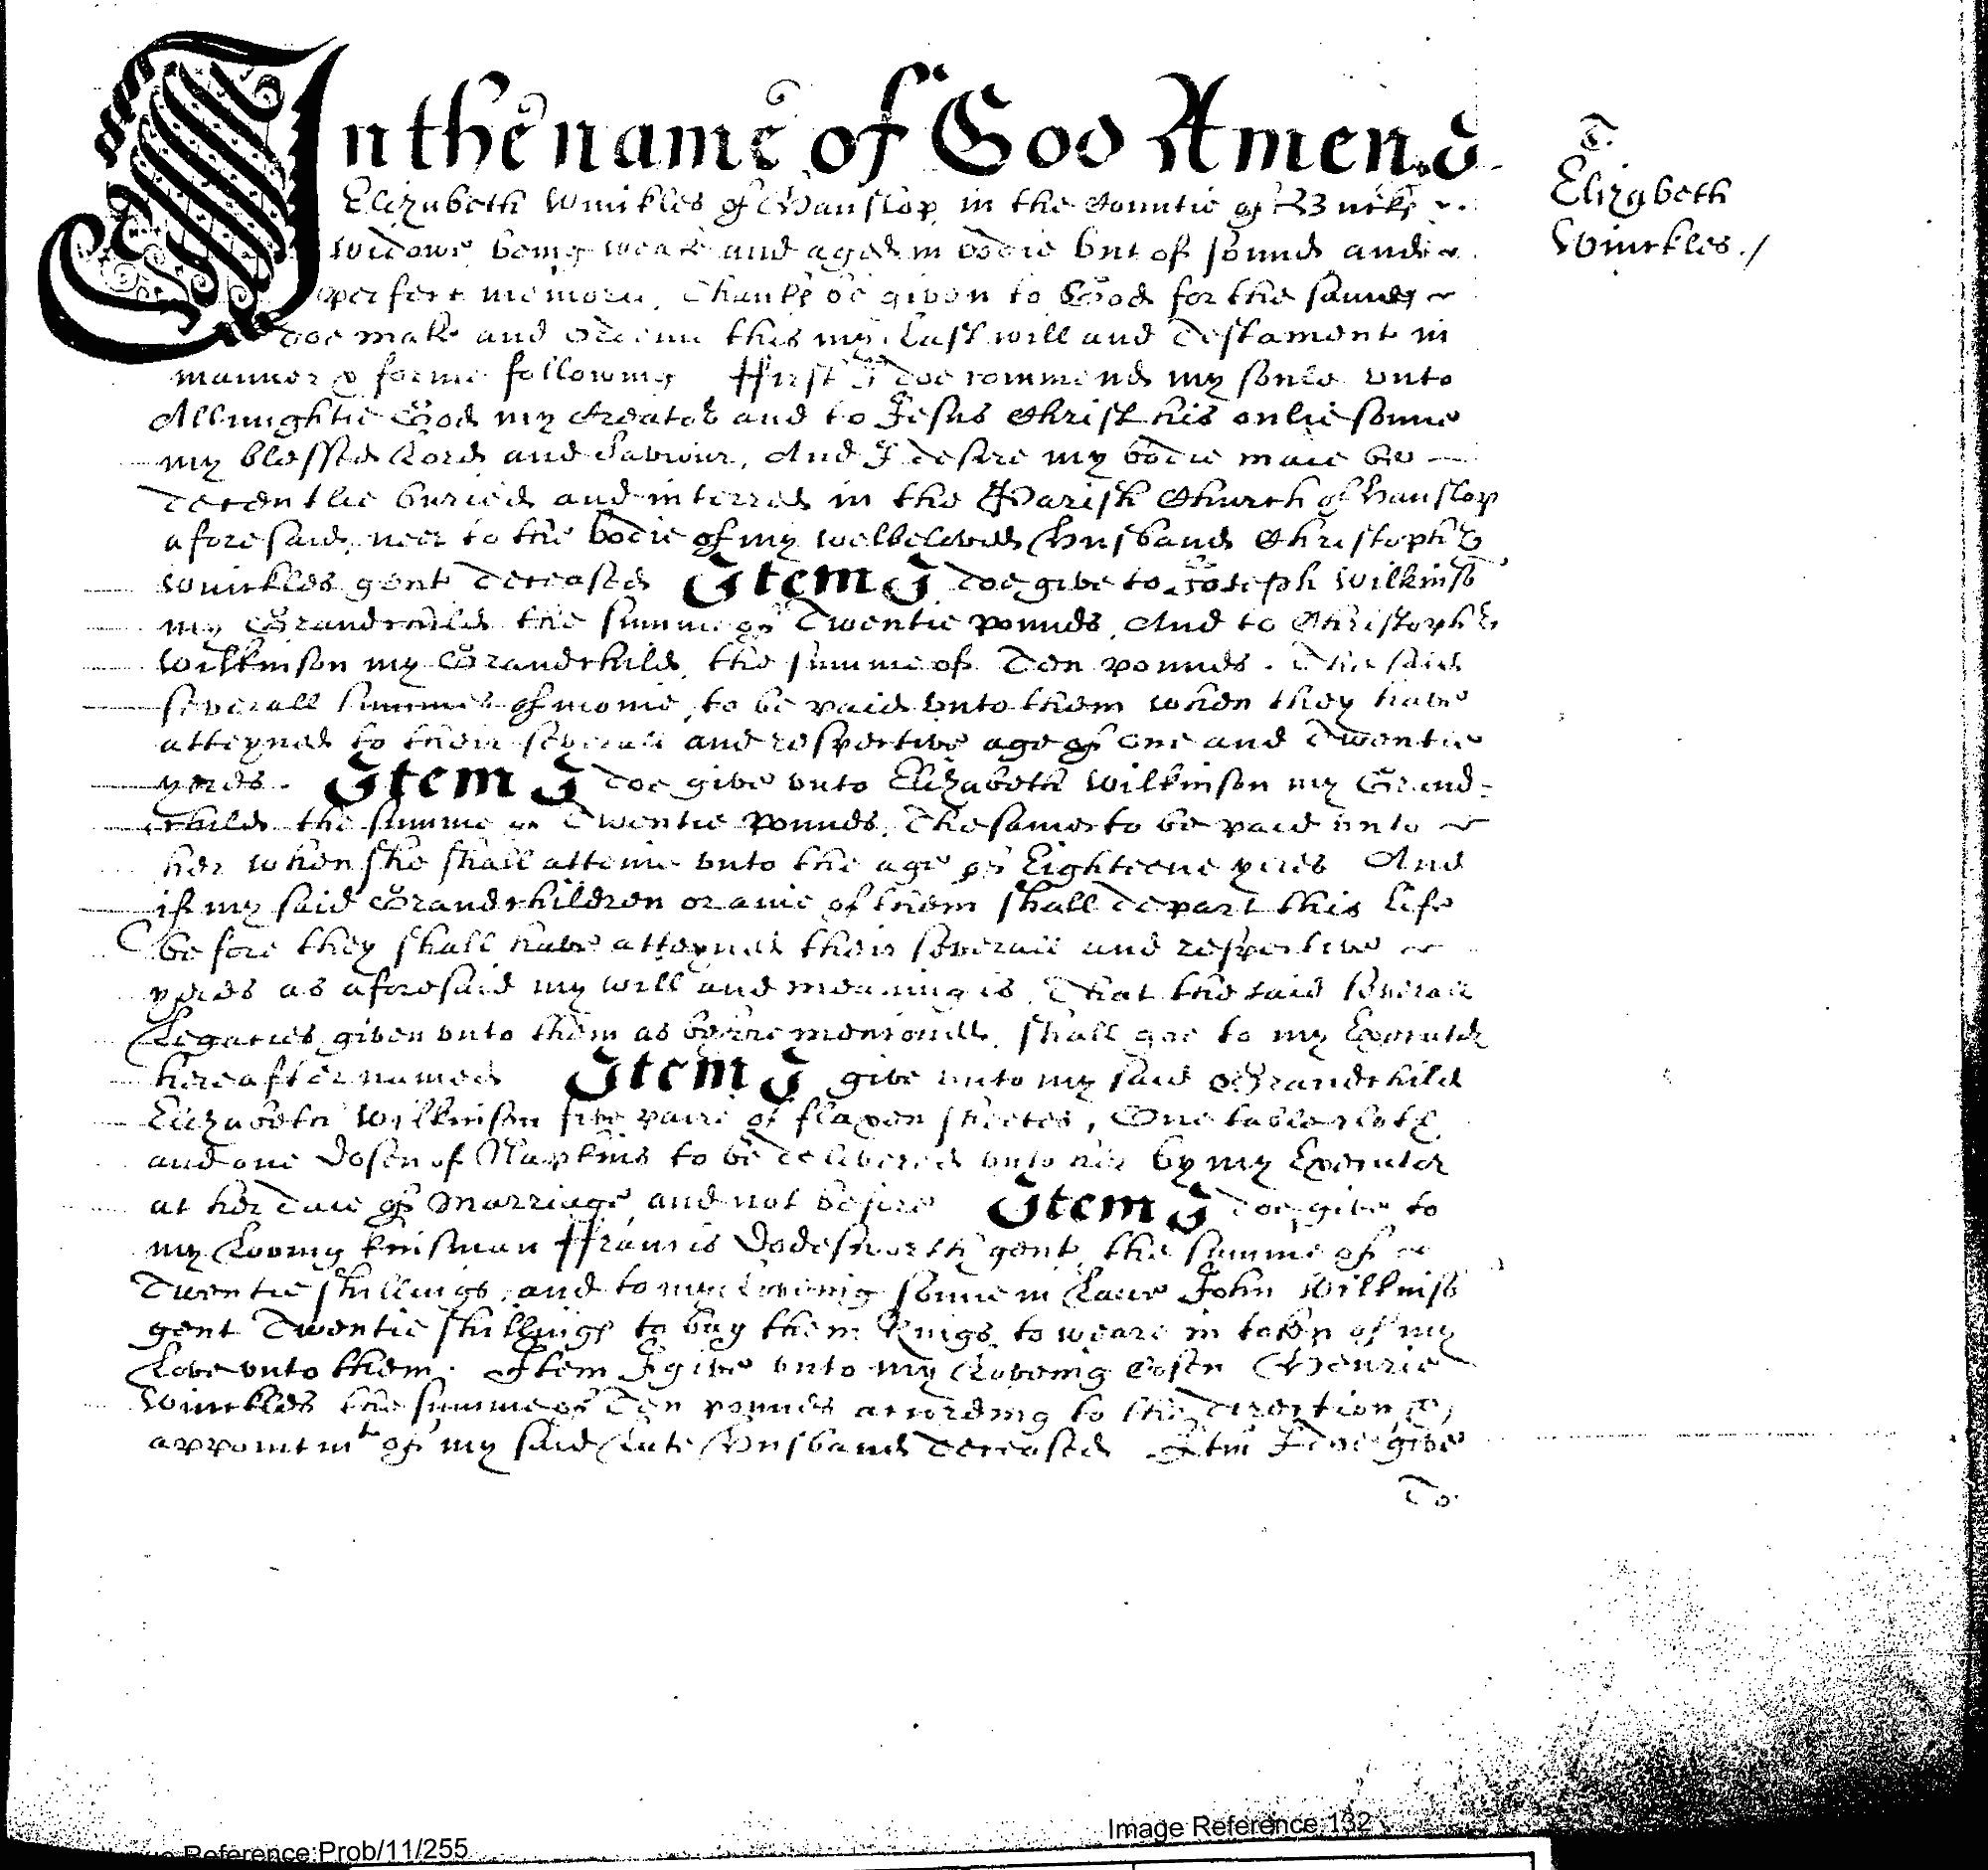 In the name of God Amen. I
Elizabeth Winckles of Hanslop in the Countie of Bucks
Widowe being weake and aged in bodie but of sound and
perfect memory, thanks be given to God for the same
doe make and ordeine this my last will and testament in
manner & forme following ffirst I doe commend my soule unto
Allmightie God my Creator and to Jesus Christ his onlie sonne
my blessed Lord and Saviour, And I desire my bodie maie be
decentlie buried and interred in the Parish Church of Hanslop
aforesaid, neer to the bodie of my welbeloved Husband Christopher
Winckles gent deceased Item I doe give to Joseph Wilkinson
my Grandchild the summe of Twentie pounds, And to Christopher
Wilkinson my Grandchild, the summe of Ten pounds. The said
severall summes of monie, to be paid unto them when they have
atteyned to their severall and respective age of one and Twentie
yeres. Item I doe give unto Elizabeth Wilkinson my Grand-
child the summe of Twentie pounds, The same to be paid unto
her when she shall atteine unto the age of Eighteene yeres And
if my said Grandchildren or anie of them shall depart this life
before they shall have atteyned their severall and respective
yeres as aforesaid my will and meaning is, That the said severall
Legacies given unto them as before mentioned, shall goe to my Executor
hereafter named Item I give unto my said Grandchild
Elizabeth Wilkinson five paire of flaxen sheetes, One table cloth,
and one dosen of Napkins to be delivered unto her by my Executor
at her daie of Marriage and not before Item I doe give to
my Loving kinsman ffrancis Dodesworth gent, the summe of
Twentie shillings, and to my Loveing sonne in Lawe John Wilkinson
gent Twentie shillings to buy them Rings to weare in token of my
Love unto them. Item I give unto my Loveing Cosen Henrie
Winckles the summe of Ten pounds according to the direction &
appointmt of my said Late Husband deceased Itm I doe give
To
T.
Elizabeth
Winckles./
Reference:Prob/11/255
Image Reference:132